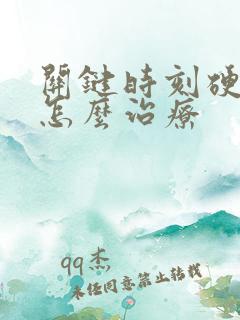 關鍵時刻硬
怎麼治療
qq杰
未经同意禁止转载